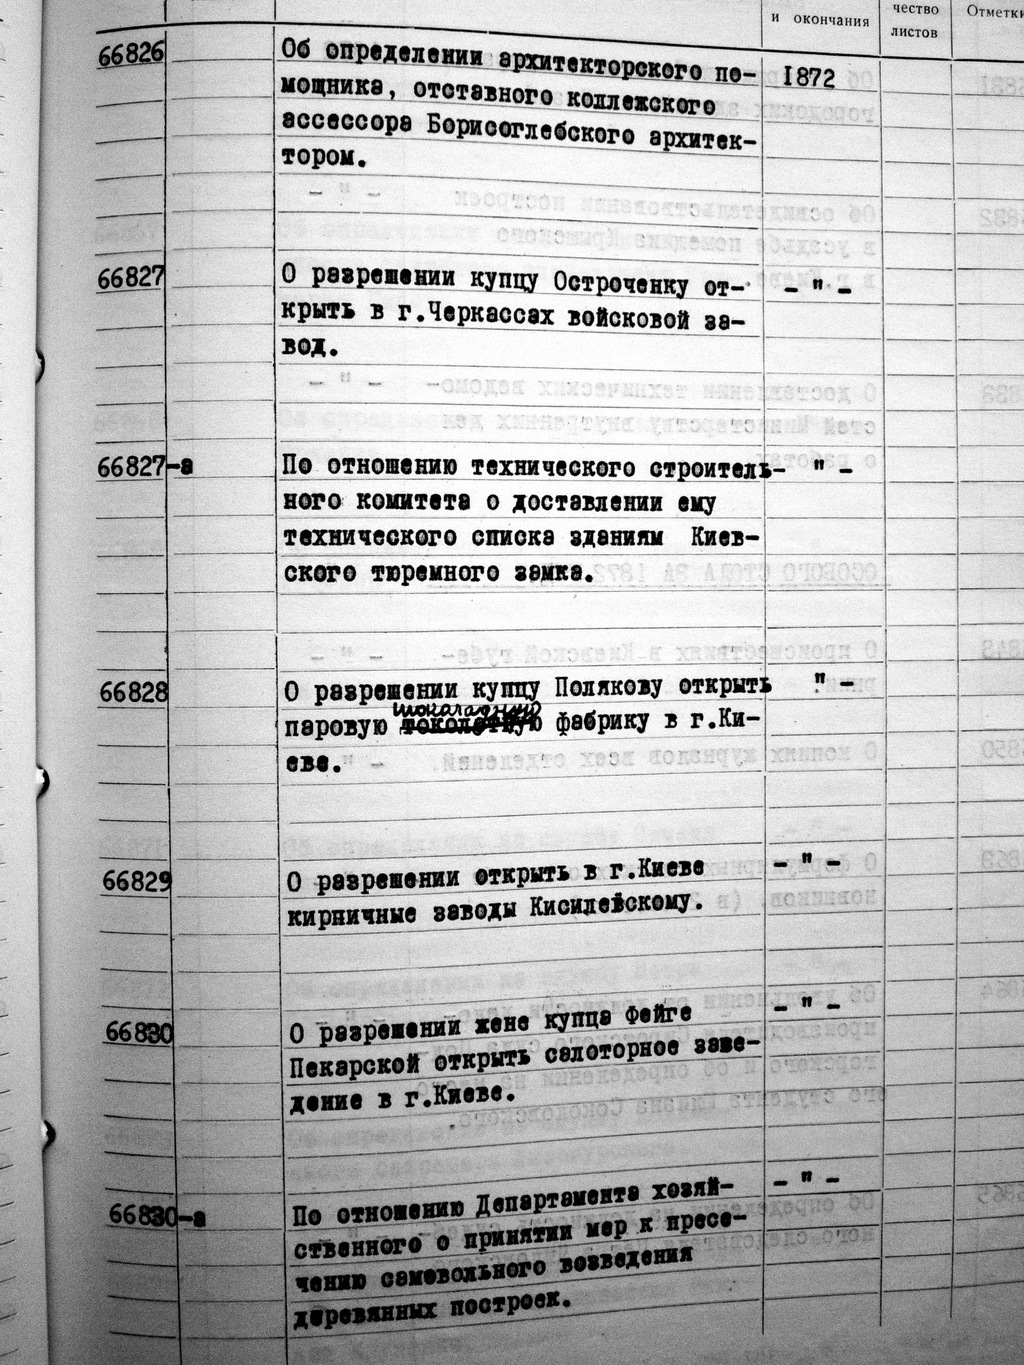 и окончания
чество
листов
Отметки
66826
Об определении архитекторского по-
1872
мощника, отставного коллежского
ассессора Борисоглебского архитек-
тором.
66827
О разрешении купцу Остроченку от-
- " -
крыть в г.Черкассах войсковой за-
вод.
66827-а
По отношению технического строитель-
" -
ного комитета о доставлении ему
технического списка зданиям Киев-
ского тюремного замка.
66828
О разрешении купцу Полякову открыть
" -
шоколадную
паровую токолетную фабрику в г.Ки-
еве.
66829
О разрешении открыть в г.Киеве
- " -
кирпичные заводы Кисилевскому.
66830
О разрешении жене купца Фейге
- " -
Пекарской открыть салоторное заве-
дение в г.Киеве.
66830-а
По отношению Департамента хозяй-
- " -
ственного о принятии мер к пресе-
чению самовольного возведения
деревянных построек.